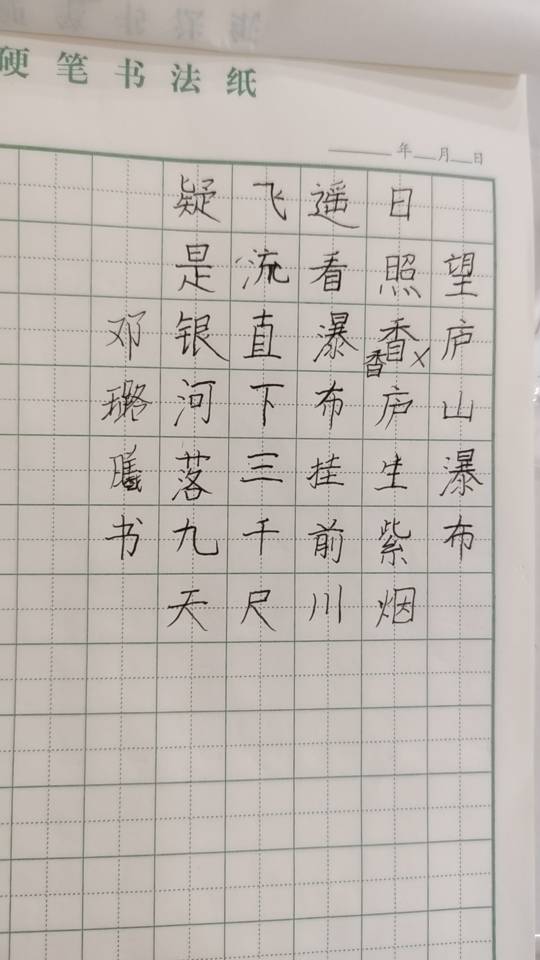 硬笔书法纸
年 月 日
望庐山瀑布
日照香庐生紫烟
香
遥看瀑布挂前川
飞流直下三千尺
疑是银河落九天
邓璐书